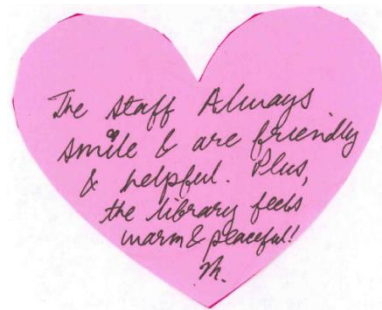 The staff Always
smile & are friendly
& helpful. Plus,
the library feels
warm & peaceful!
M.